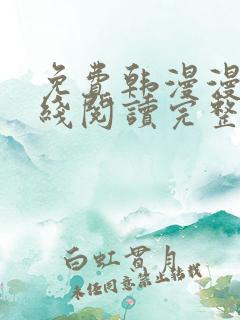 免费韩漫漫
线阅读完整
白虹贯月
未经同意禁止转载